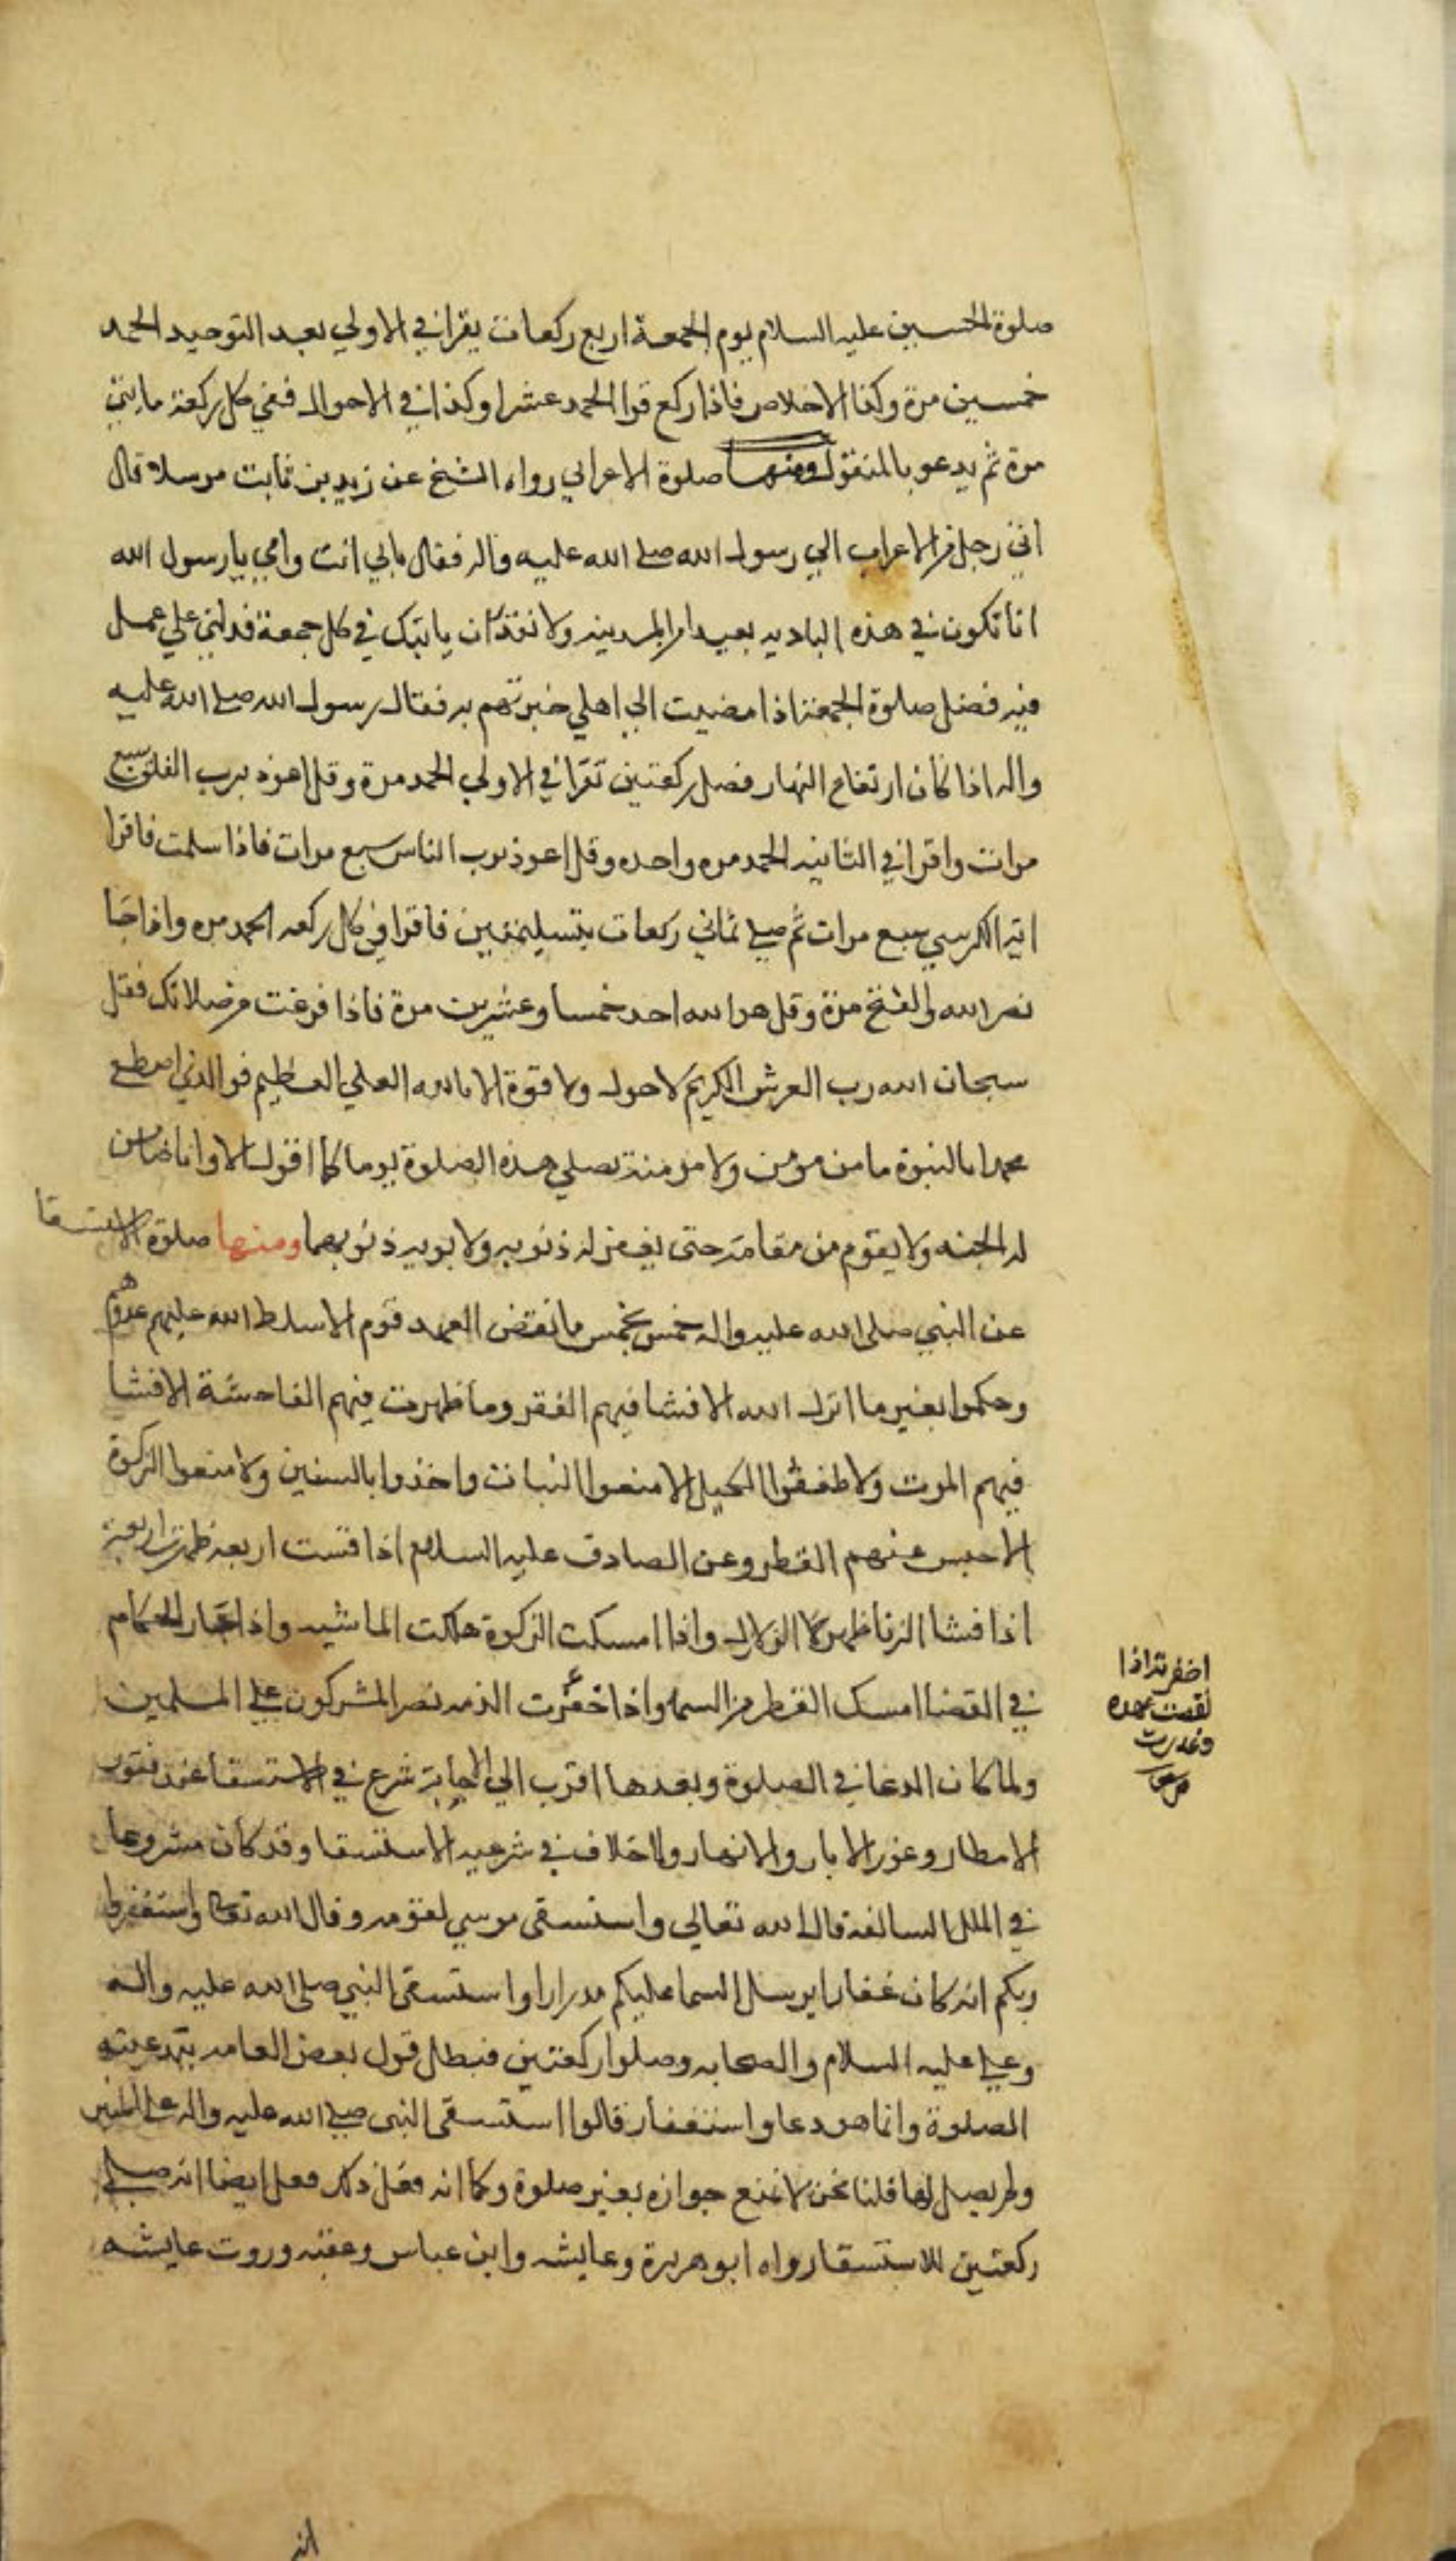 صلوة الحسين عليه السلام يوم الجمعة اربع ركعات يقرا في الاولي بعد التوحيد الحمد
خمسين مرة وكذا الاخلاص فاذا ركع قرا الحمد عشرا وكذا في الاحوال ففي كل ركعة مايتي
مرة ثم يدعو بالمنقول ومنها صلوة الاعرابي رواه الشيخ عن زيد بن ثابت مرسلا قال
اتي رجل من الاعراب الي رسول الله صلي الله عليه واله فقال بابي انت وامي يا رسول الله
انا نكون في هذه الباديه بعيدا من المدينه ولا نقدر ان ياتيك في كل جمعة فدلني علي عمل
فيه فضل صلوة الجمعة اذا مضيت الي اهلي خبرتهم به فقال رسول الله صلي الله عليه
واله اذا كان ارتفاع النهار فصل ركعتين تقرا في الاولي الحمد مرة وقل اعوذ برب الفلق سبع
مرات واقرا في الثانيه الحمد مره واحده وقل اعوذ برب الناس سبع مرات فاذا سلمت فاقرا
اية الكرسي سبع مرات ثم صلي ثماني ركعات بتسليمتين فاقرا في كل ركعه الحمد مره واذا جا
نصر الله والفتح مرة وقل هو الله احد خمسا وعشرين مرة فاذا فرغت من صلاتك فقل
سبحان الله رب العرش الكريم لا حول ولا قوة الا بالله العلي العظيم فوالذي اصطفي
محمدا بالنبوة ما من مؤمن ولا مومنة يصلي هذه الصلوة يوما كما اقول الا وانا ضامن
له الجنه ولا يقوم من مقامه حتى يغفر له ذنوبه ولابويه ذنوبهما ومنها صلوة الاستسقا
عن النبي صلى الله عليه واله خمس بخمس ما نقض العهد قوم الا سلط الله عليهم عدوهم
وحكموا بغير ما انزل الله الا فشا فيهم الفقر وما ظهرت فيهم الفاحشة الا فشا
فيهم الموت ولا طففوا الكيل الا منعوا النبات واخذوا بالسنين ولا منعوا الزكوة
الا حبس عنهم القطر وعن الصادق عليه السلام اذا فشت اربعه ظهرت اربعة
اذا فشا الزنا ظهرت الزلازل واذا امسكت الزكوة هلكت الماشيه واذا جار الحكام
في القضا امسك القطر من السما واذا خفرت الذمه نصر المشركون علي المسلمين
ولما كان الدعا في الصلوة وبعدها اقرب الي الاجابة شرع في الاستسقا عند فتور
الامطار وغور الابار والانهار ولا خلاف في شرعيه الاستسقا وقد كان مشروعا
في الملل السالفة قال الله تعالي واستسقى موسي لقومه وقال الله تعالى واستغفروا
ربكم انه كان غفارا يرسل السما عليكم مدرارا واستسقى النبي صلى الله عليه واله
وعلي عليه السلام والصحابه وصلوا ركعتين فبطل قول بعض العامه ببدعيته
الصلوة وانما هو دعا واستغفار قالوا استسقى النبي صلي الله عليه واله علي المنبر
ولم يصل لها قلنا نحن لا نمنع جوازه بغير صلوة وكما انه فعل ذلك فعل ايضا انه صلي
ركعتين للاستسقا رواه ابو هريرة وعايشه وابن عباس وروت عايشه
اخفرته اذا
نقضت عهده
وغدرت